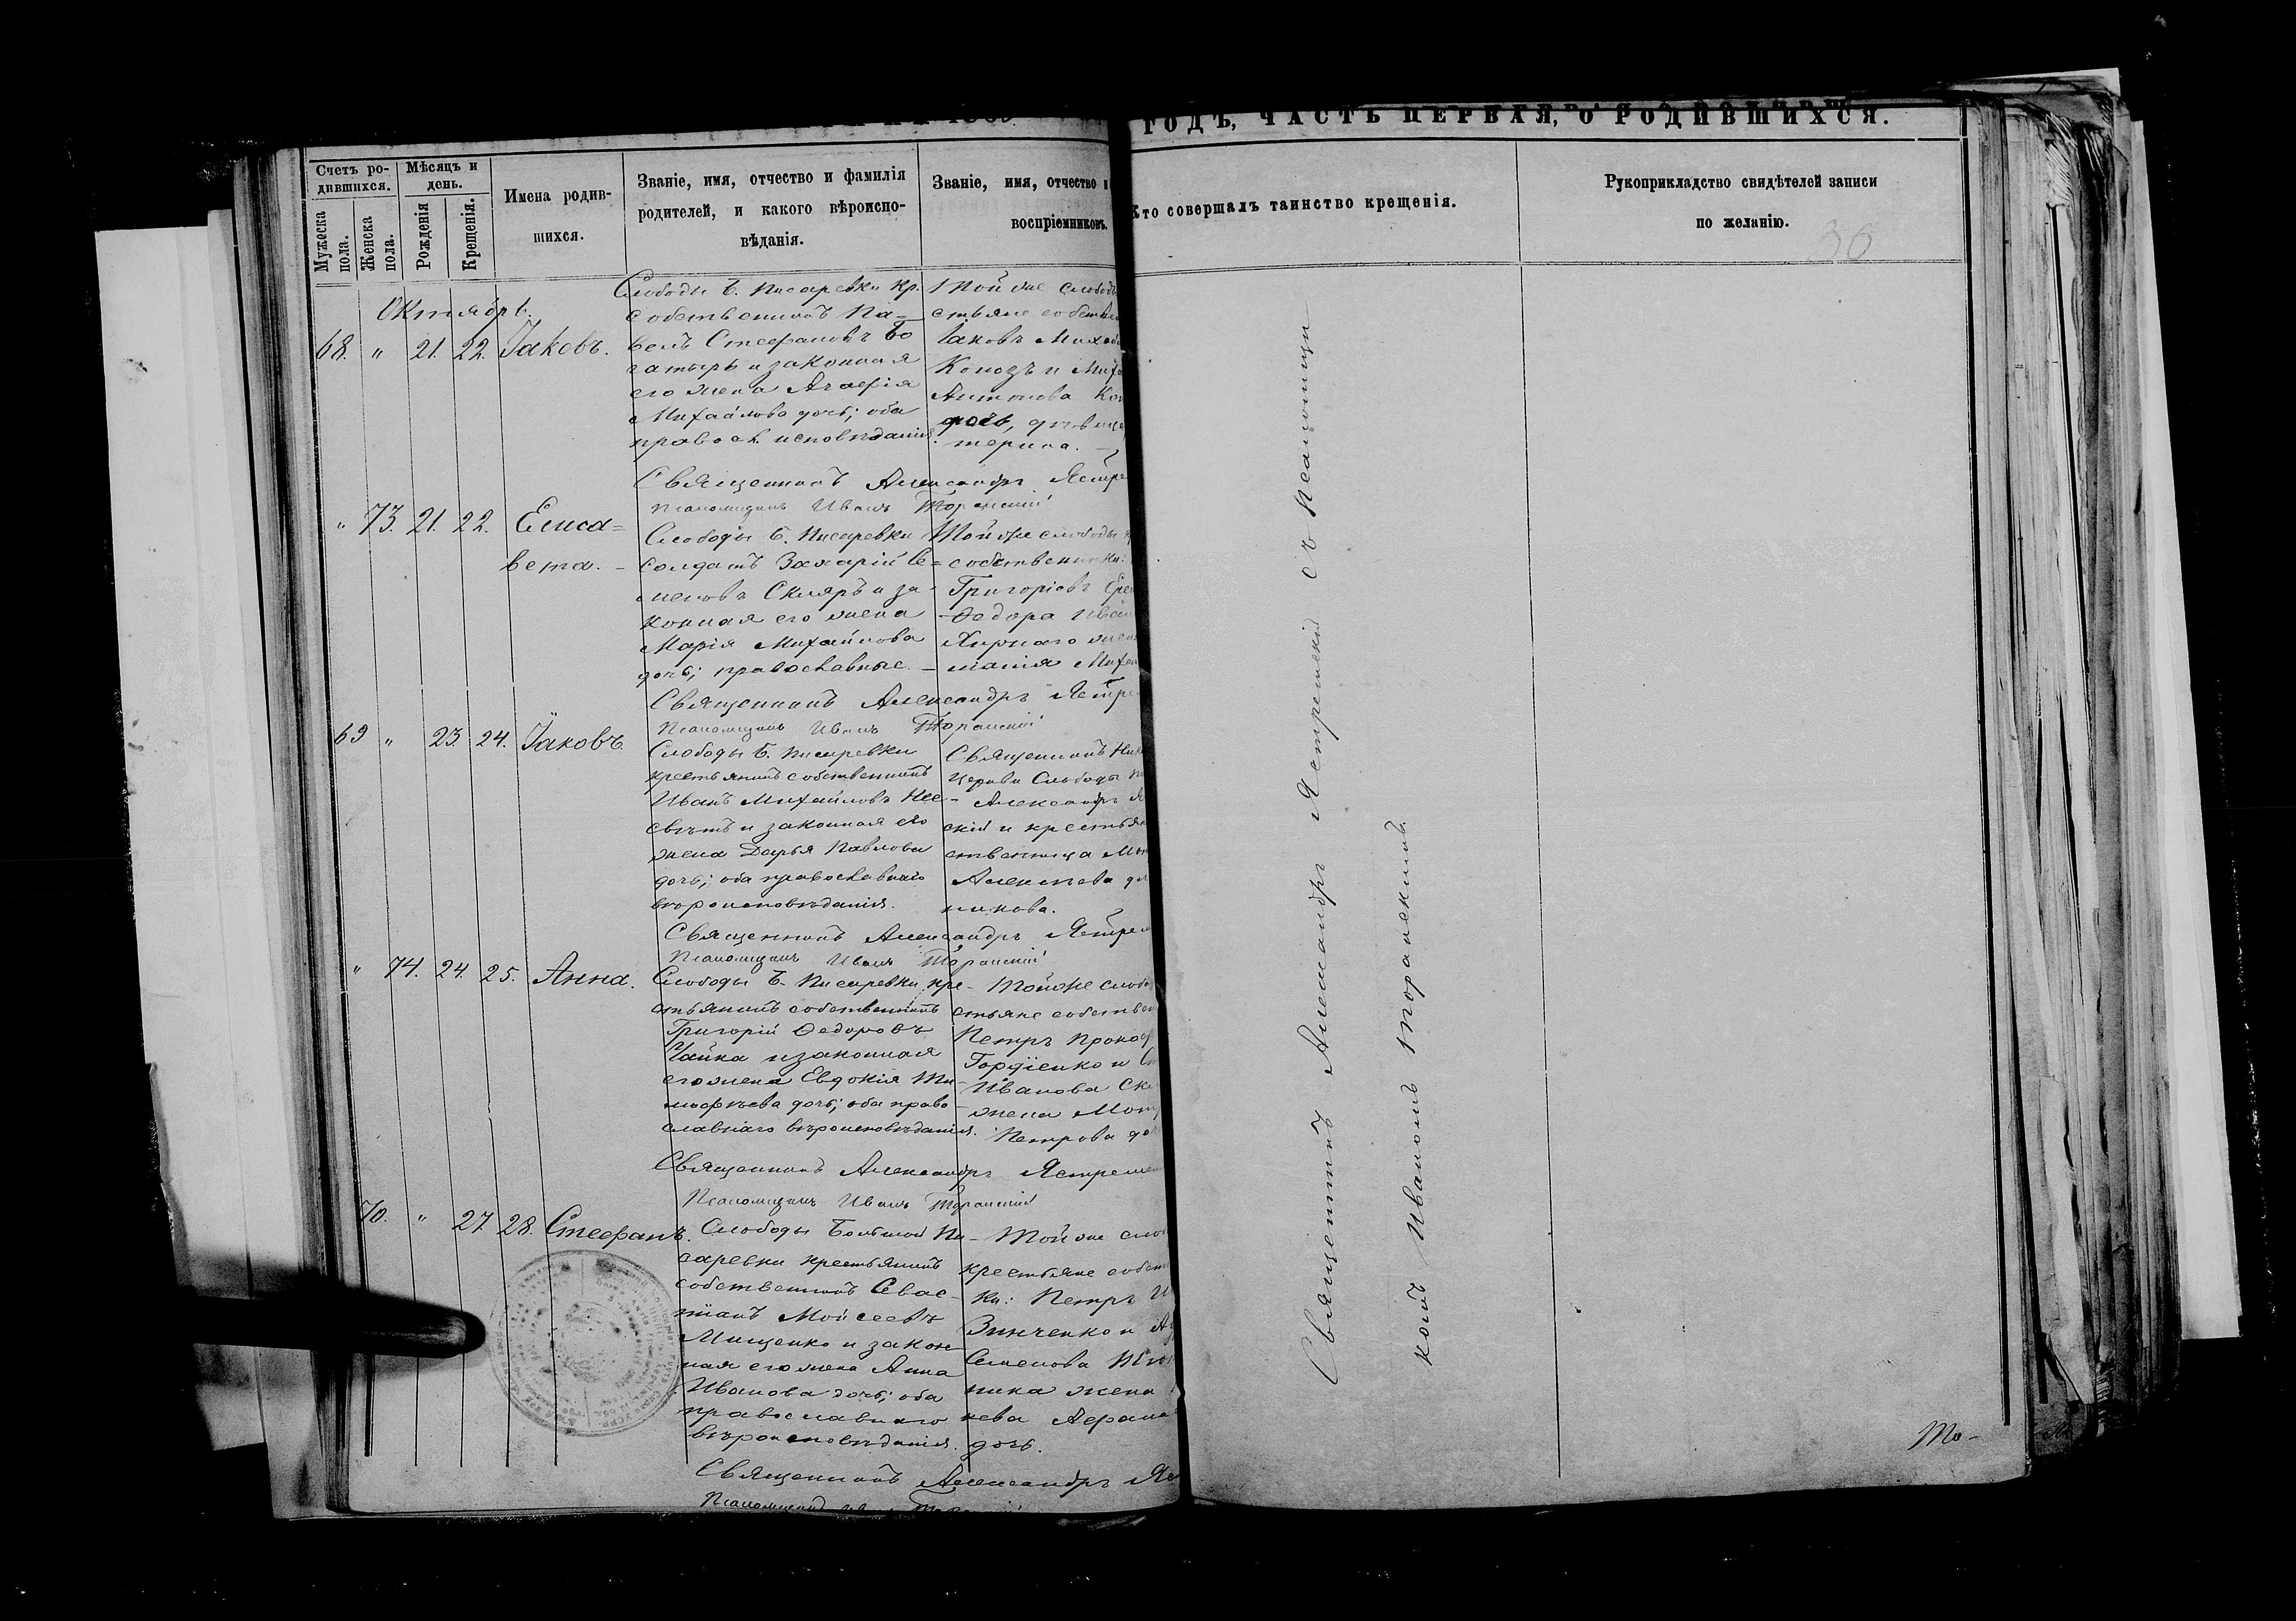 ГОДЪ, ЧАСТЬ ПЕРВАЯ, О РОДИВШИХСЯ.
Счетъ ро-
дившихся.
Мужеска
пола.
Женска
пола.
Мѣсяцъ и
день.
Рожденія
Крещенія.
Имена родив-
шихся.
Званіе, имя, отчество и фамилія
родителей, и какого вѣроиспо-
вѣданія.
Званіе, имя, отчество и
воспріемниковъ.
Кто совершалъ таинство крещенія.
Рукоприкладство свидѣтелей записи
по желанію.
36
Октябрь.
68. " 21. 22. Іаковъ.
Слободы Б. Писаревки кр.
собственникъ Па-
велъ Стефановъ Бо
гатырь и законная
его жена Агафія
Михайлова дочь; оба
правосл. исповѣданія.
Той же слободы
стьяне собствен
Іаковъ Миха
Коно и Миха
Антонова Ко
дочь, дѣвица
терина.
Священникъ Александръ Ястре
Псаломщикъ Иванъ Торанскій
" 73. 21. 22. Елиса=
вета.
Слободы Б. Писаревки
солдатъ Захарій Се=
меновъ Скляръ и за
конная его жена
Марія Михайлова
дочь; православные.
Той же слободы
собственники:
Григоріевъ Ере
Ѳедора Иван
Жирнаго жен
Миха
Священникъ Александръ Ястре
Псаломщикъ Иванъ Торанскій
69 " 23. 24. Іаковъ.
Слободы Б. Писаревки
крестьянинъ собственникъ
Иванъ Михайловъ Нес-
свѣтъ и законная его
жена Дарья Павлова
дочь; оба православнаго
вѣроисповѣданія.
Священникъ Ник
церкви Слободы П
Александръ Я
скій и крестьян
ственница М
Алексѣева до
никова.
Священникъ Александръ Ястрем
Псаломщикъ Иванъ Торанскій
" 74. 24. 25. Анна.
Слободы Б. Писаревки кре-
стьянинъ собственникъ
Григорій Ѳедоровъ
Чайка и законная
его жена Евдокія Ти-
мофѣева дочь; оба право
славнаго вѣроисповѣданія.
Той же слобо
стьяне собствен
Петръ Прокоф
Гордіенко и
Иванова Ск
жена Мот
Петрова до
Священникъ Александръ Ястремс
Псаломщикъ Иванъ Торанскій
70. " 27 28. Стефанъ.
Слободы Большой Пи-
саревки крестьянинъ
собственникъ Севас-
тіанъ Моісеевъ
Мищенко и закон
ная его жена Анна
Иванова дочь; оба
православнаго
вѣроисповѣданія.
Той же сло
крестьяне собст
ки: Петръ И
Зинченко и А
Семенова
ника жена
нева Афана
дочь.
Священникъ Александръ Яс
Псаломщикъ
Священникъ Александръ Ястремскій съ Псаломщи-
комъ Иваномъ Торанскимъ.
То-